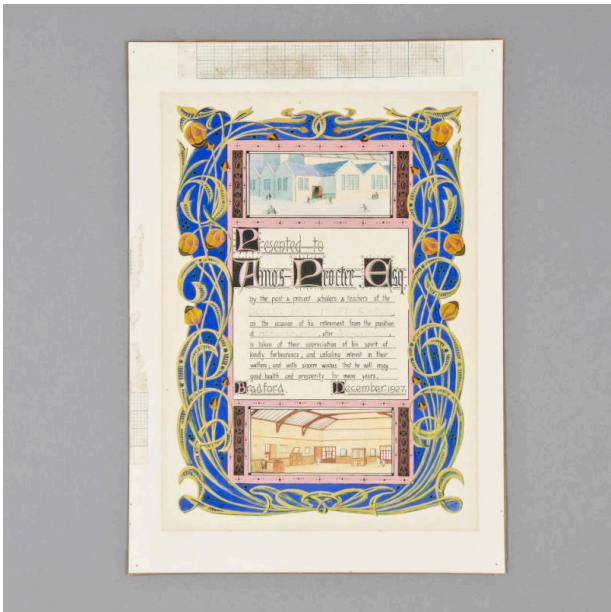 Presented to
Amos Procter. Esq.
by the past & present scholars & teachers of the
on the occasion of his retirement from the position
of , after
is taken of their appreciation of his spirit of
kindly forbearance, and unfailing interest in their
welfare; and with sincere wishes that he will enjoy
good health and prosperity for many years.
Bradford. December.1927.